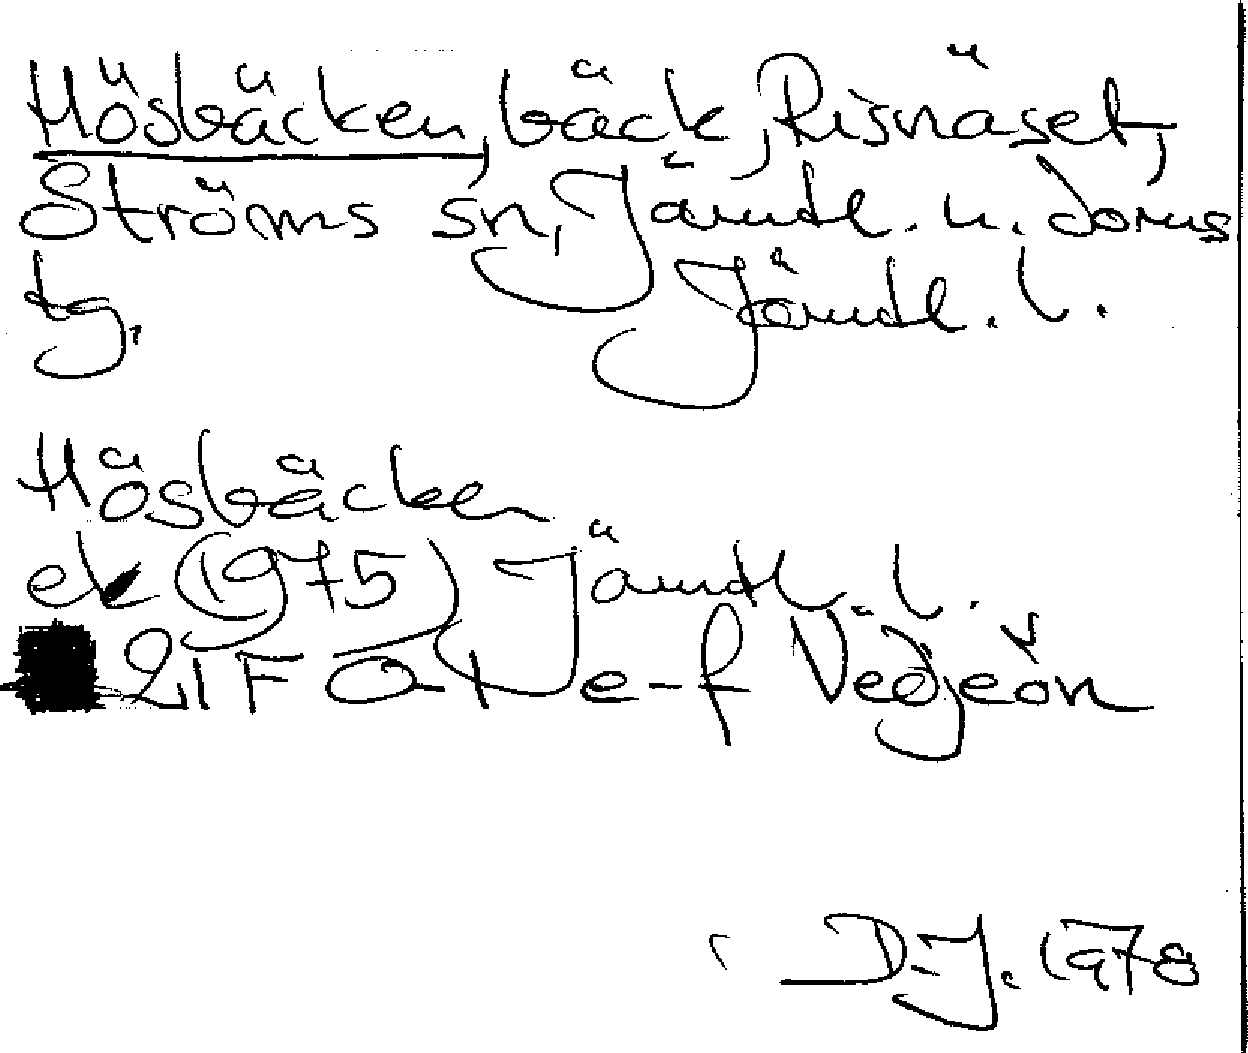 Hösbäcken, bäck, Risnäset,
Ströms sn, Jämtl. n. doms
tg, Jämtl. l.
Hösbäcken
ek (1975) Jämtl. l.
21F 0-1 e-f Vedjeön
D.J. 1978